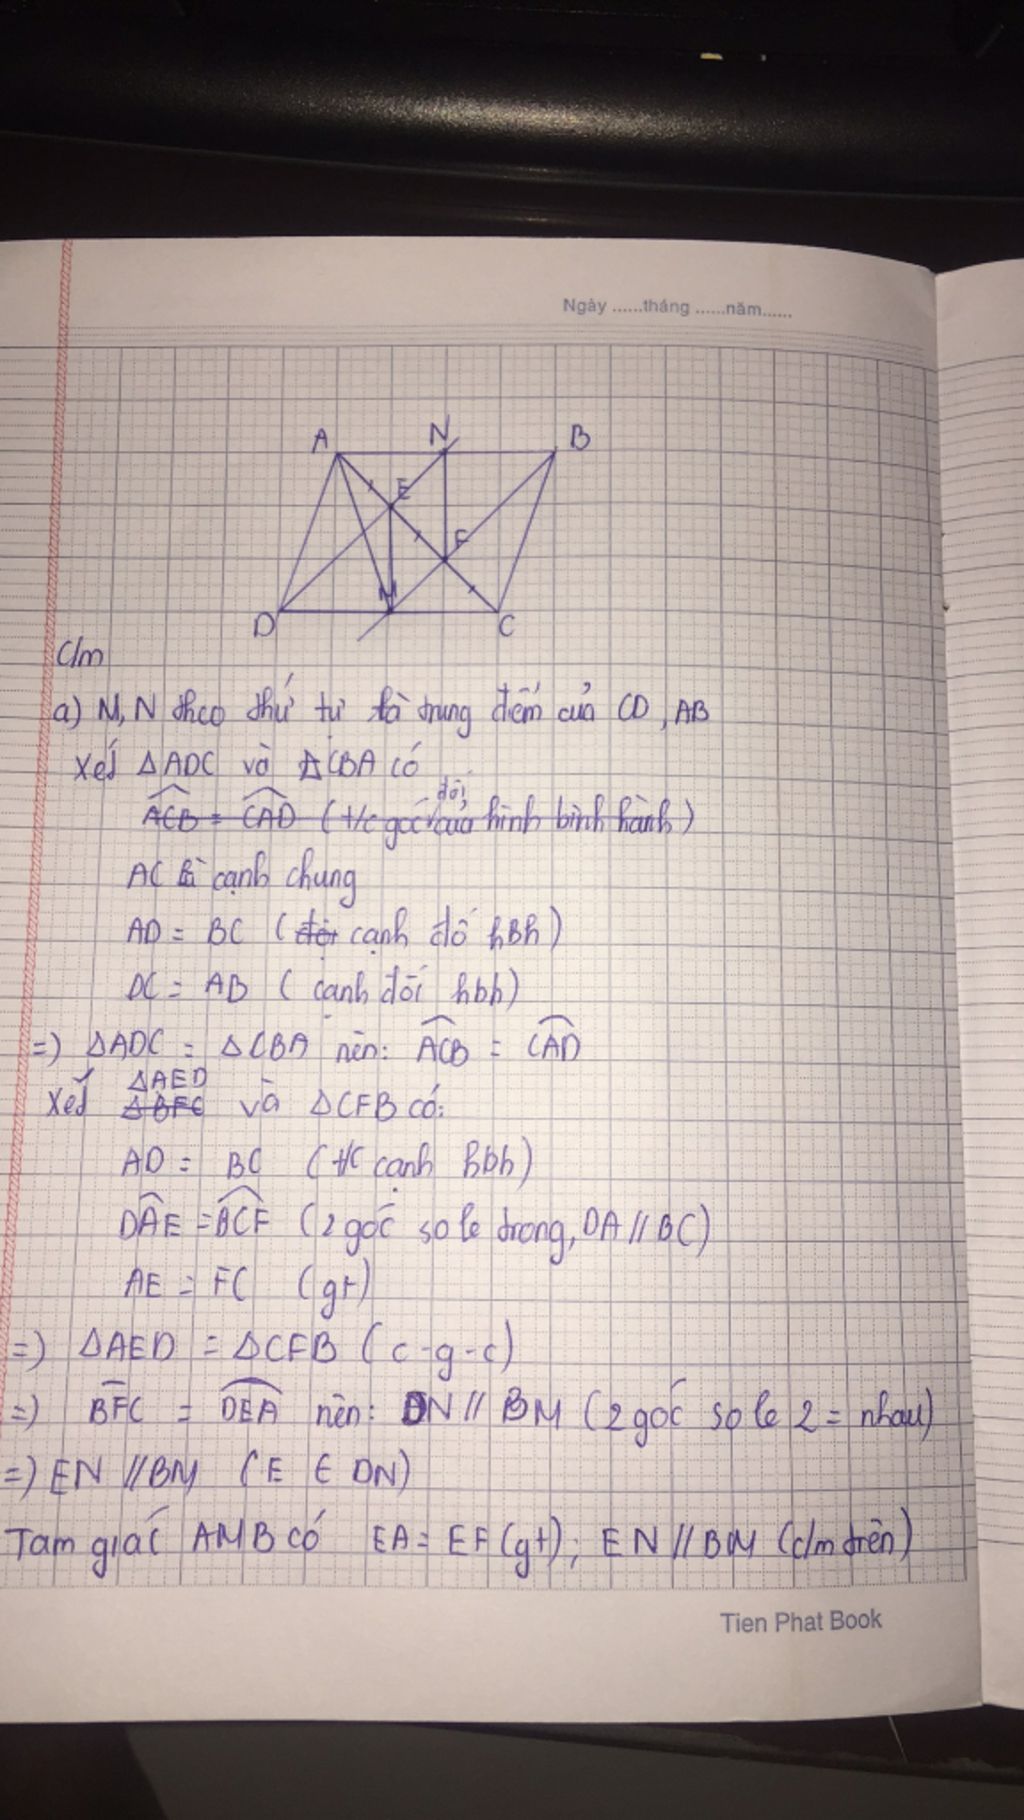 Ngày ......tháng ......năm......
A N B
E
F
M
D C
C/m
a) M, N theo thứ tự là trung điểm của CD, AB
Xét ΔADC và ΔCBA có
ACB = CAD (t/c góc đối của hình bình hành)
AC là cạnh chung
AD = BC (đối cạnh đố hBh)
DC = AB (cạnh đối hbh)
=) ΔADC = ΔCBA nên: ACB = CAD
ΔAED
Xét ΔBFC và ΔCFB có:
AD = BC (t/c cạnh hbh)
DAE = BCF (2 góc so le trong, DA // BC)
AE = FC (gt)
=) ΔAED = ΔCFB (c-g-c)
=) BFC = DEA nên: DN // BM (2 góc so le 2 = nhau)
=) EN // BM (E ∈ DN)
Tam giác AMB có EA = EF (gt); EN // BM (c/m trên)
Tien Phat Book